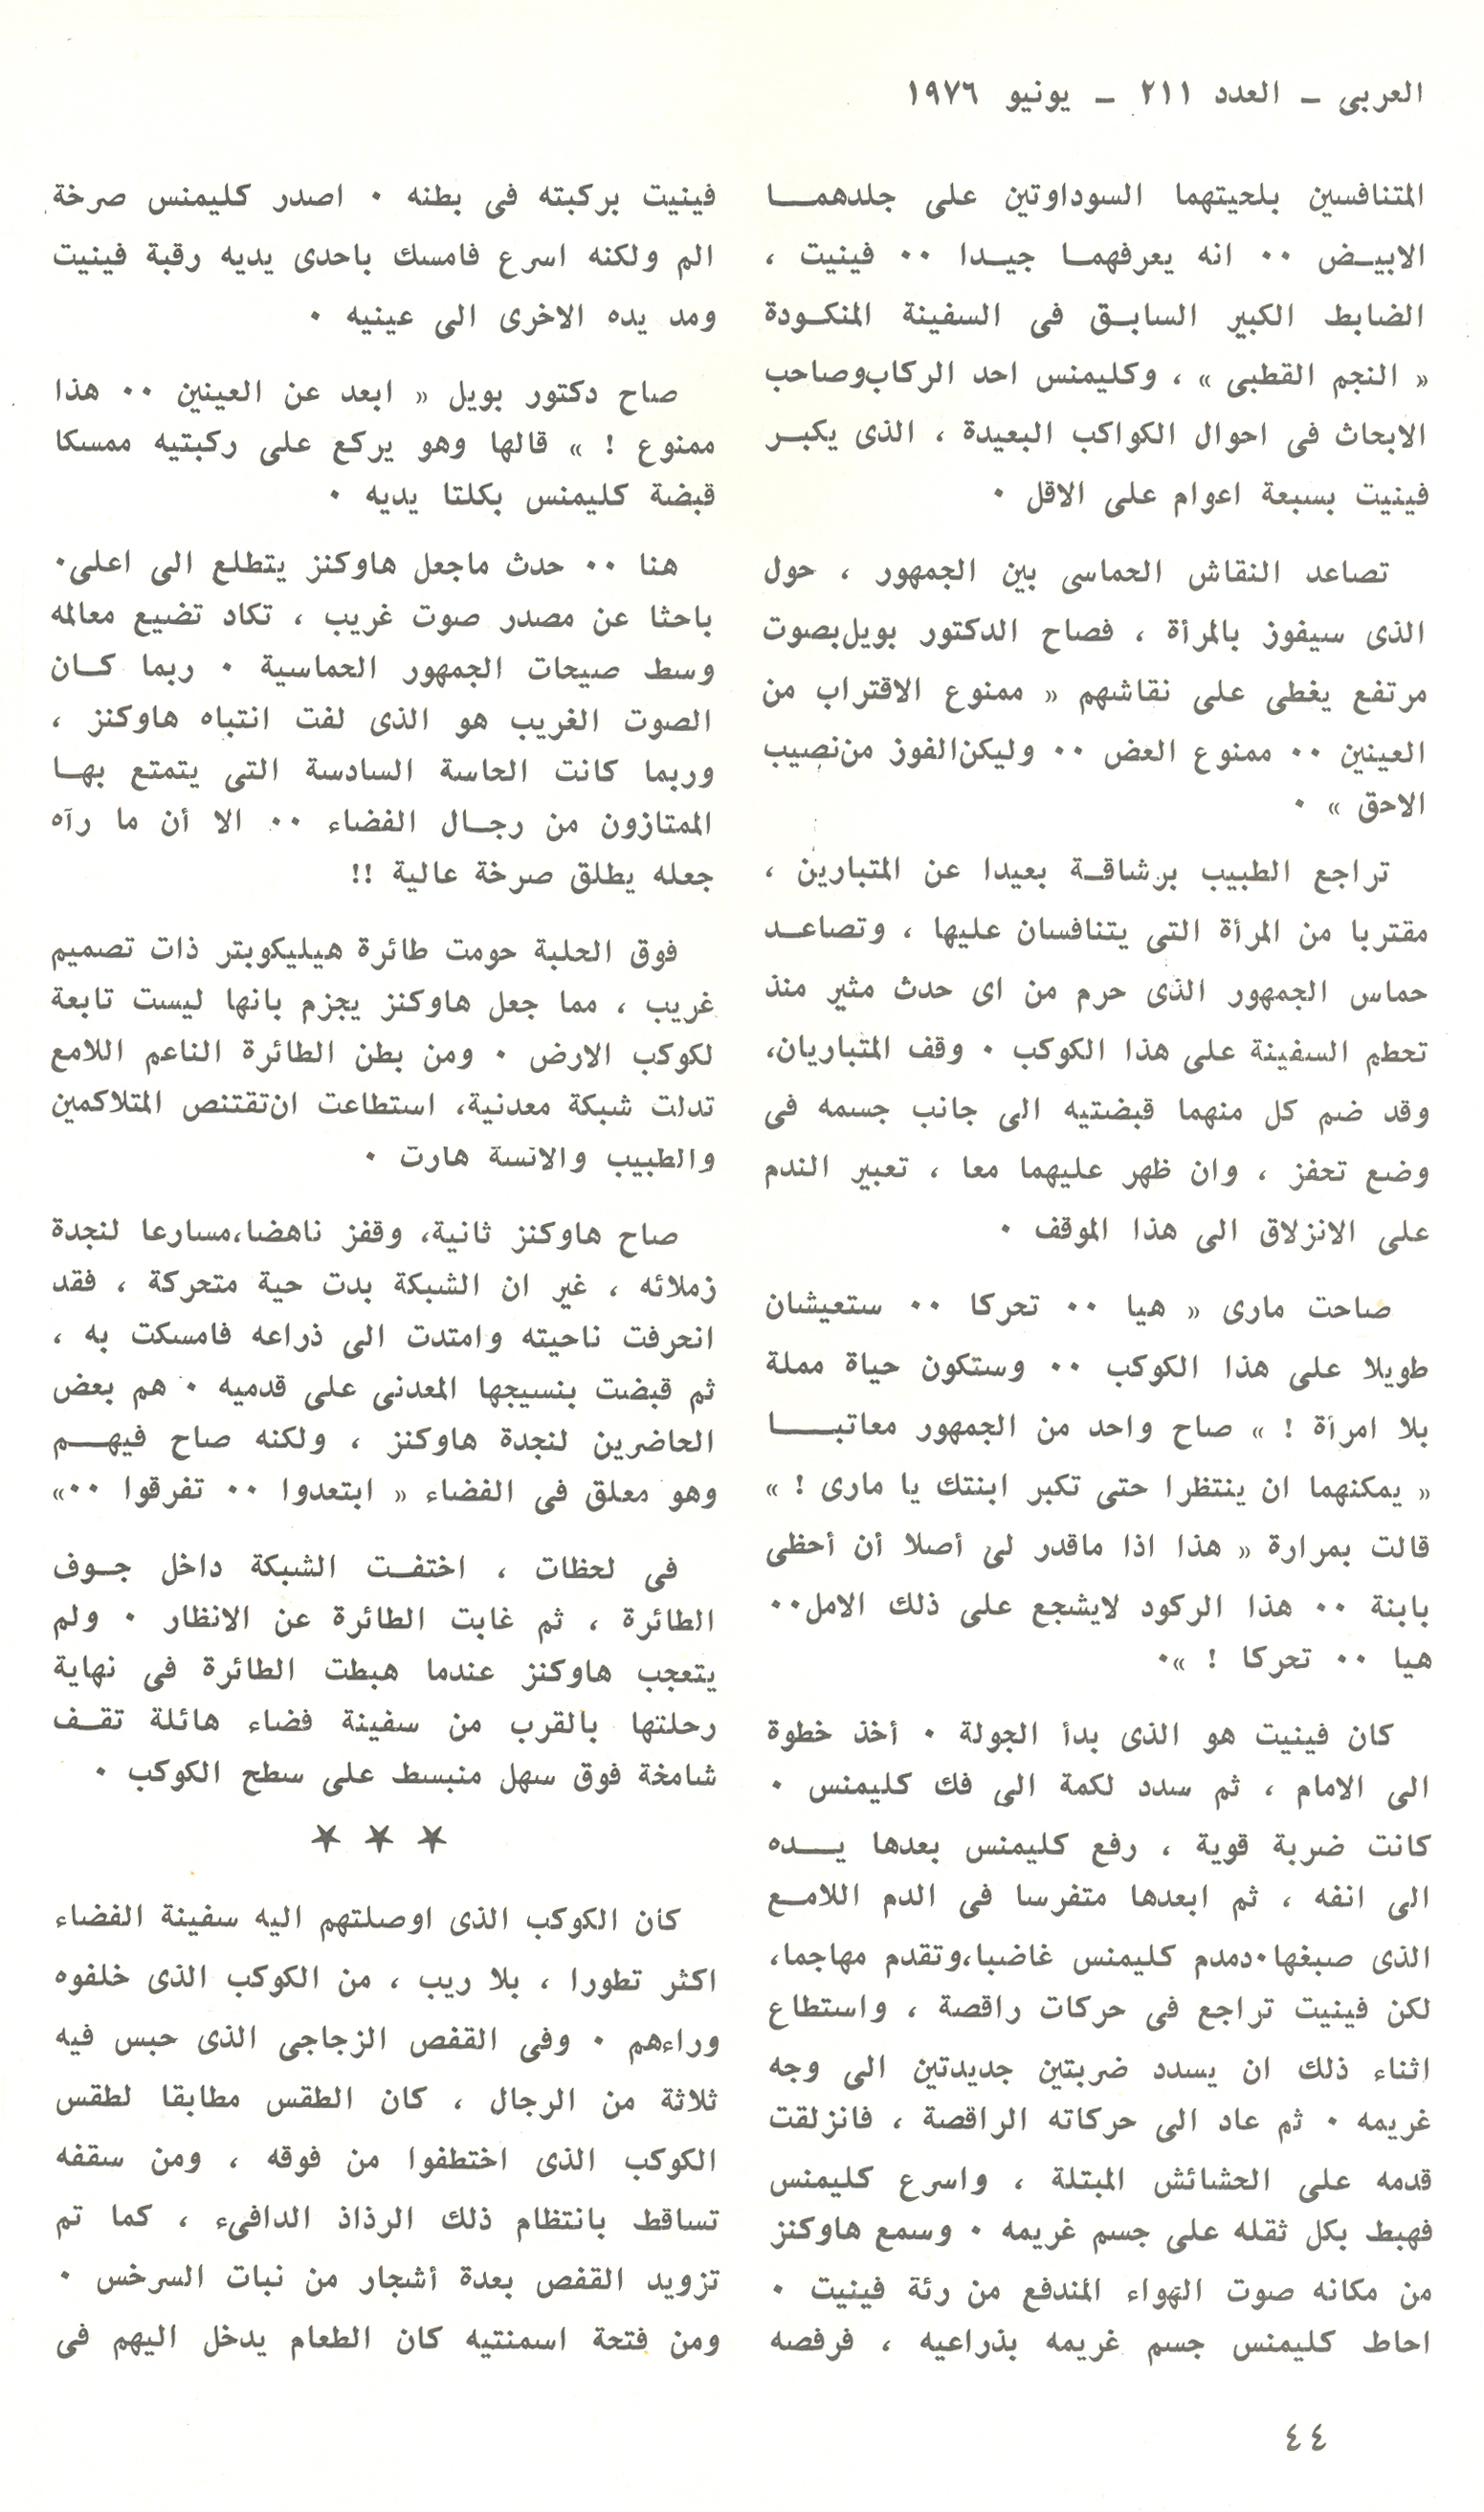 العربى ــ العدد ٢١١ ــ يونيو ١٩٧٦
المتنافسين بلحيتهما السوداوتين على جلدهما
الابيض ٠٠ انه يعرفهما جيدا ٠٠ فينيت ،
الضابط الكبير السابق فى السفينة المنكودة
« النجم القطبى » ، وكليمنس احد الركاب وصاحب
الابحاث فى احوال الكواكب البعيدة ، الذى يكبر
فينيت بسبعة اعوام على الاقل ٠
تصاعد النقاش الحماسى بين الجمهور ، حول
الذى سيفوز بالمرأة ، فصاح الدكتور بويل بصوت
مرتفع يغطى على نقاشهم « ممنوع الاقتراب من
العينين ٠٠ ممنوع العض ٠٠ وليكن الفوز من نصيب
الاحق » ٠
تراجع الطبيب برشاقة بعيدا عن المتبارين ،
مقتربا من المرأة التى يتنافسان عليها ، وتصاعد
حماس الجمهور الذى حرم من اى حدث مثير منذ
تحطم السفينة على هذا الكوكب ٠ وقف المتباريان،
وقد ضم كل منهما قبضتيه الى جانب جسمه فى
وضع تحفز ، وان ظهر عليهما معا ، تعبير الندم
على الانزلاق الى هذا الموقف ٠
صاحت مارى « هيا ٠٠ تحركا ٠٠ ستعيشان
طويلا على هذا الكوكب ٠٠ وستكون حياة مملة
بلا امرأة ! » صاح واحد من الجمهور معاتبا
« يمكنهما ان ينتظرا حتى تكبر ابنتك يا مارى ! »
قالت بمرارة « هذا اذا ماقدر لى أصلا أن أحظى
بابنة ٠٠ هذا الركود لايشجع على ذلك الامل٠٠
هيا ٠٠ تحركا ! »٠
كان فينيت هو الذى بدأ الجولة ٠ أخذ خطوة
الى الامام ، ثم سدد لكمة الى فك كليمنس ٠
كانت ضربة قوية ، رفع كليمنس بعدها يده
الى انفه ، ثم ابعدها متفرسا فى الدم اللامع
الذى صبغها٠دمدم كليمنس غاضبا،وتقدم مهاجما،
لكن فينيت تراجع فى حركات راقصة ، واستطاع
اثناء ذلك ان يسدد ضربتين جديدتين الى وجه
غريمه ٠ ثم عاد الى حركاته الراقصة ، فانزلقت
قدمه على الحشائش المبتلة ، واسرع كليمنس
فهبط بكل ثقله على جسم غريمه ٠ وسمع هاوكنز
من مكانه صوت الهواء المندفع من رئة فينيت ٠
احاط كليمنس جسم غريمه بذراعيه ، فرفصه
فينيت بركبته فى بطنه ٠ اصدر كليمنس صرخة
الم ولكنه اسرع فامسك باحدى يديه رقبة فينيت
ومد يده الاخرى الى عينيه ٠
صاح دكتور بويل « ابعد عن العينين ٠٠ هذا
ممنوع ! » قالها وهو يركع على ركبتيه ممسكا
قبضة كليمنس بكلتا يديه ٠
هنا ٠٠ حدث ماجعل هاوكنز يتطلع الى اعلى٠
باحثا عن مصدر صوت غريب ، تكاد تضيع معالمه
وسط صيحات الجمهور الحماسية ٠ ربما كان
الصوت الغريب هو الذى لفت انتباه هاوكنز ،
وربما كانت الحاسة السادسة التى يتمتع بها
الممتازون من رجال الفضاء ٠٠ الا أن ما رآه
جعله يطلق صرخة عالية !!
فوق الحلبة حومت طائرة هيليكوبتر ذات تصميم
غريب ، مما جعل هاوكنز يجزم بانها ليست تابعة
لكوكب الارض ٠ ومن بطن الطائرة الناعم اللامع
تدلت شبكة معدنية، استطاعت ان تقتنص المتلاكمين
والطبيب والانسة هارت ٠
صاح هاوكنز ثانية، وقفز ناهضا،مسارعا لنجدة
زملائه ، غير ان الشبكة بدت حية متحركة ، فقد
انحرفت ناحيته وامتدت الى ذراعه فامسكت به ،
ثم قبضت بنسيجها المعدنى على قدميه ٠ هم بعض
الحاضرين لنجدة هاوكنز ، ولكنه صاح فيهم
وهو معلق فى الفضاء « ابتعدوا ٠٠ تفرقوا ٠٠»
فى لحظات ، اختفت الشبكة داخل جوف
الطائرة ، ثم غابت الطائرة عن الانظار ٠ ولم
يتعجب هاوكنز عندما هبطت الطائرة فى نهاية
رحلتها بالقرب من سفينة فضاء هائلة تقف
شامخة فوق سهل منبسط على سطح الكوكب ٠
★ ★ ★
كان الكوكب الذى اوصلتهم اليه سفينة الفضاء
اكثر تطورا ، بلا ريب ، من الكوكب الذى خلفوه
وراءهم ٠ وفى القفص الزجاجى الذى حبس فيه
ثلاثة من الرجال ، كان الطقس مطابقا لطقس
الكوكب الذى اختطفوا من فوقه ، ومن سقفه
تساقط بانتظام ذلك الرذاذ الدافىء ، كما تم
تزويد القفص بعدة أشجار من نبات السرخس ٠
ومن فتحة اسمنتيه كان الطعام يدخل اليهم فى
٤٤